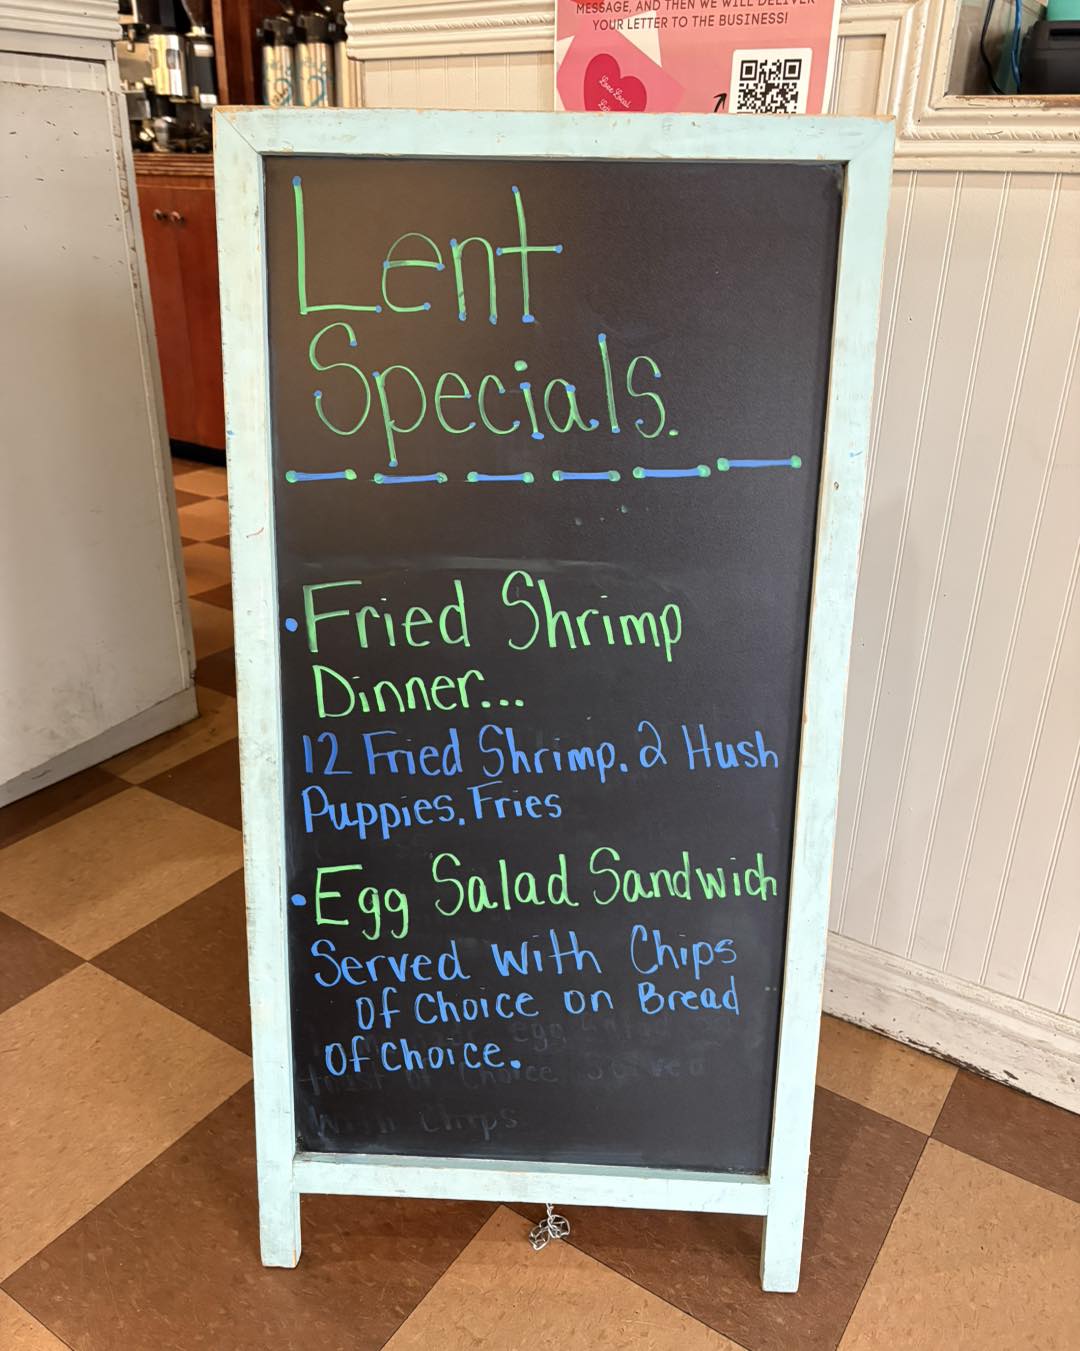 MESSAGE, AND THEN WE WILL DELIVER
YOUR LETTER TO THE BUSINESS!
Love Local
Lent
Specials.
• Fried Shrimp
Dinner...
12 Fried Shrimp. 2 Hush
Puppies. Fries
• Egg Salad Sandwich
Served With Chips
of Choice on Bread
of Choice.
egg
toast of Choice Served
With Chips